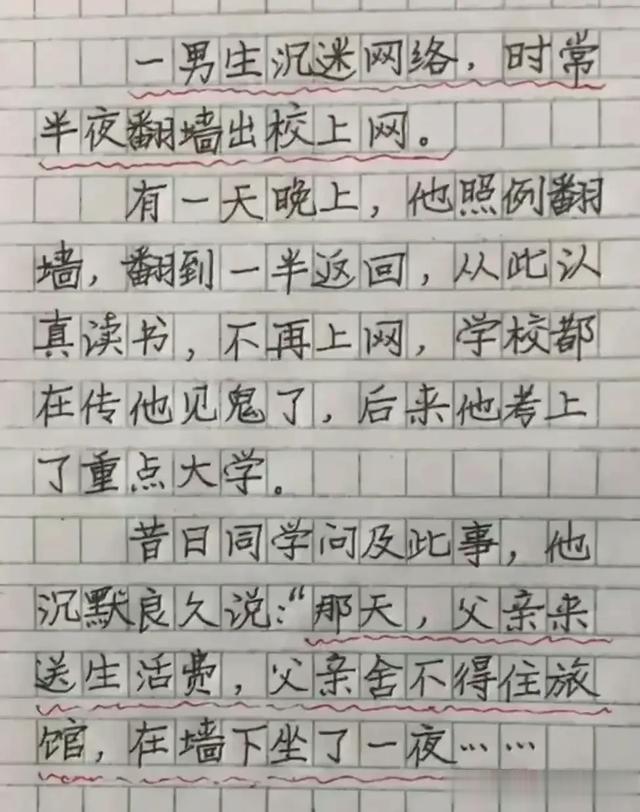 一男生沉迷网络，时常
半夜翻墙出校上网。
有一天晚上，他照例翻
墙，翻到一半返回，从此认
真读书，不再上网，学校都
在传他见鬼了，后来他考上
了重点大学。
昔日同学问及此事，他
沉默良久说：“那天，父亲来
送生活费，父亲舍不得住旅
馆，在墙下坐了一夜……